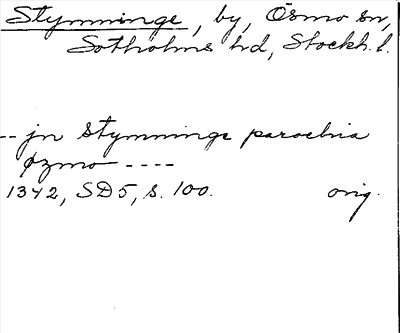 Stymminge, by, Ösmo sn,
Sotholms hd, Stockh. l.
-- jn Stymminge paroehia
Øzmo ----
1342, SD5, s. 100. orig.